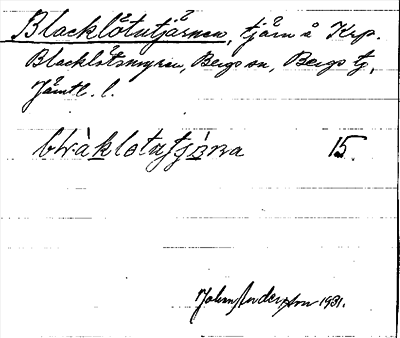 Blacklötutjärnen, tjärn å Krp.
Blacklötsmyren, Bergs sn, Bergs tj,
Jämtl. l.
blὰklotutjɔ̀na 15.
John Anderson 1931.